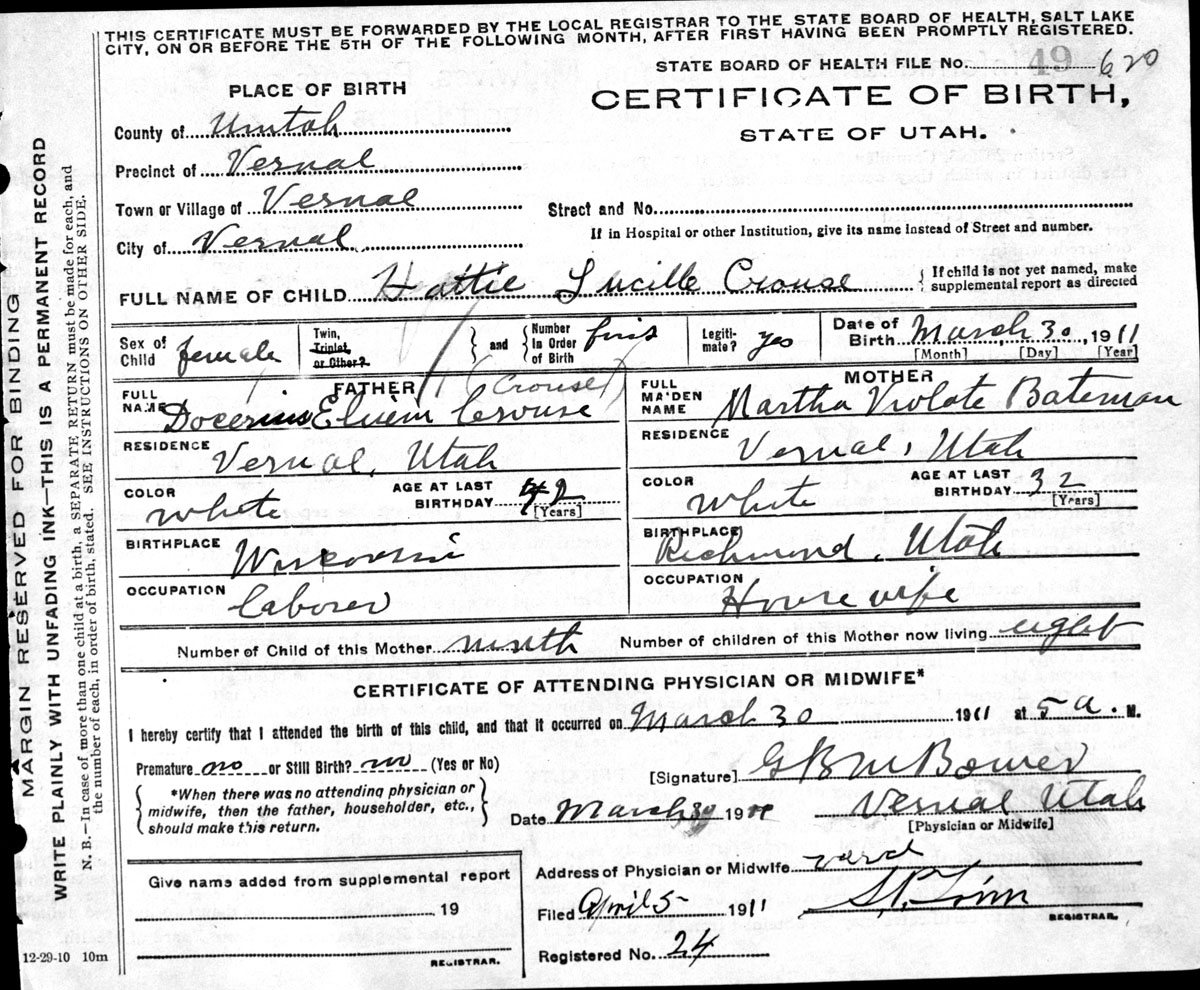 THIS CERTIFICATE MUST BE FORWARDED BY THE LOCAL REGISTRAR TO THE STATE BOARD OF HEALTH, SALT LAKE
CITY, ON OR BEFORE THE 5TH OF THE FOLLOWING MONTH, AFTER FIRST HAVING BEEN PROMPTLY REGISTERED.
STATE BOARD OF HEALTH FILE No. 49 620
PLACE OF BIRTH
CERTIFICATE OF BIRTH,
STATE OF UTAH.
County of Uintah
Precinct of Vernal
Town or Village of Vernal
Street and No.
City of Vernal
If in Hospital or other Institution, give its name instead of Street and number.
FULL NAME OF CHILD Hattie Lucille Crouse { If child is not yet named, make
supplemental report as directed
Sex of Child female
Twin, Triplet, or Other? } and { Number In Order of Birth first
Legiti-mate? yes
Date of Birth March 30, 1911
[Month] [Day] [Year]
FATHER (Crouse)
FULL NAME Elvein Crouse
MOTHER
FULL MAIDEN NAME Martha Violate Bateman
RESIDENCE Vernal, Utah
RESIDENCE Vernal, Utah
COLOR white AGE AT LAST BIRTHDAY 42 [Years]
COLOR White AGE AT LAST BIRTHDAY 32 [Years]
BIRTHPLACE Wisconsin
BIRTHPLACE Richmond, Utah
OCCUPATION laborer
OCCUPATION House wife
Number of Child of this Mother ninth Number of children of this Mother now living eight
CERTIFICATE OF ATTENDING PHYSICIAN OR MIDWIFE*
I hereby certify that I attended the birth of this child, and that it occurred on March 30 1911 at 5 a. M.
Premature no or Still Birth? no (Yes or No)
[Signature] Bower
{ *When there was no attending physician or
midwife, then the father, householder, etc.,
should make this return. }
Date March 30 1911
Vernal Utah
[Physician or Midwife]
Give name added from supplemental report
19
REGISTRAR.
Address of Physician or Midwife
Filed April 5- 1911
REGISTRAR.
Registered No. 24
12-29-10 10m
MARGIN RESERVED FOR BINDING
WRITE PLAINLY WITH UNFADING INK—THIS IS A PERMANENT RECORD
N. B.—In case of more than one child at a birth, a SEPARATE RETURN must be made for each, and
the number of each, in order of birth, stated. SEE INSTRUCTIONS ON OTHER SIDE.